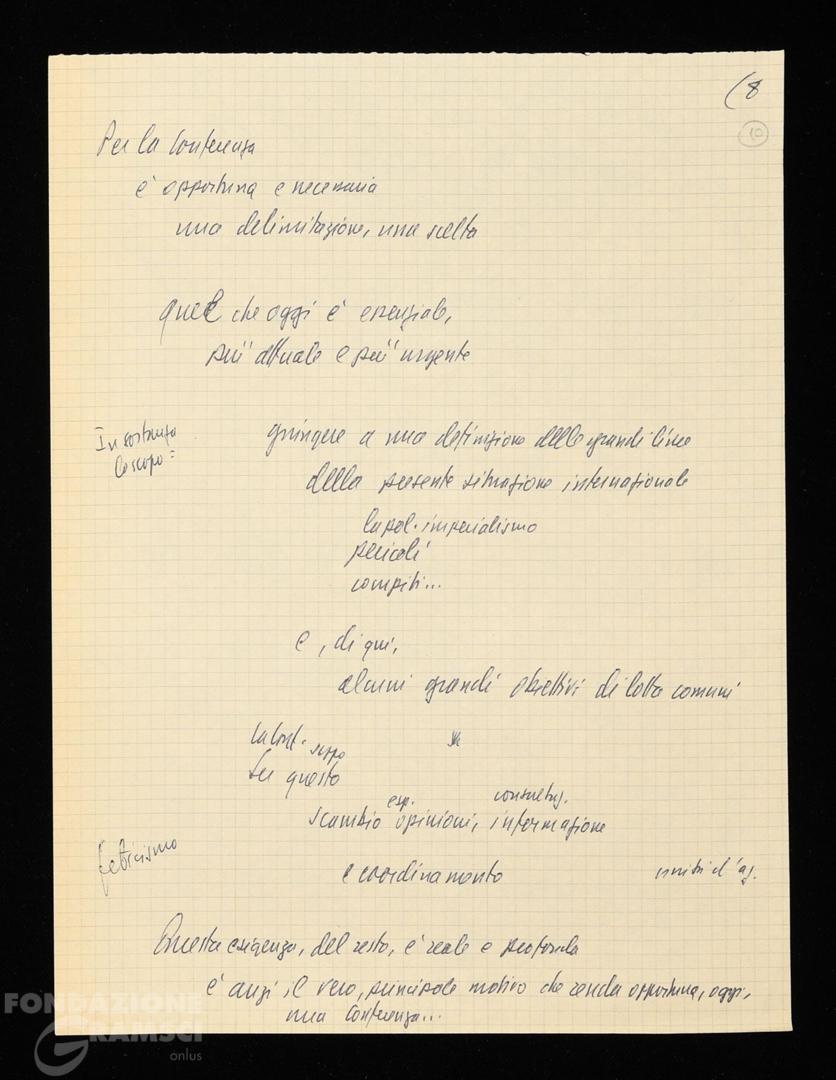 (8
10
Per la Conferenza
è opportuna e necessaria
una delimitazione, una scelta
quel che oggi è essenziale,
più attuale e più urgente
In sostanza
lo scopo =
giungere a una definizione delle grandi linee
della presente situazione internazionale
la pol. imperialismo
pericoli
compiti...
e, di qui,
alcuni grandi obiettivi di lotta comuni
Su questo
esp. consultaz.
scambio opinioni, informazione
feticismo
e coordinamento
unità d'az.
Questa esigenza, del resto, è reale e profonda
è anzi il vero, principale motivo che renda opportuna, oggi,
una Conferenza...
FONDAZIONE
GRAMSCI
onlus